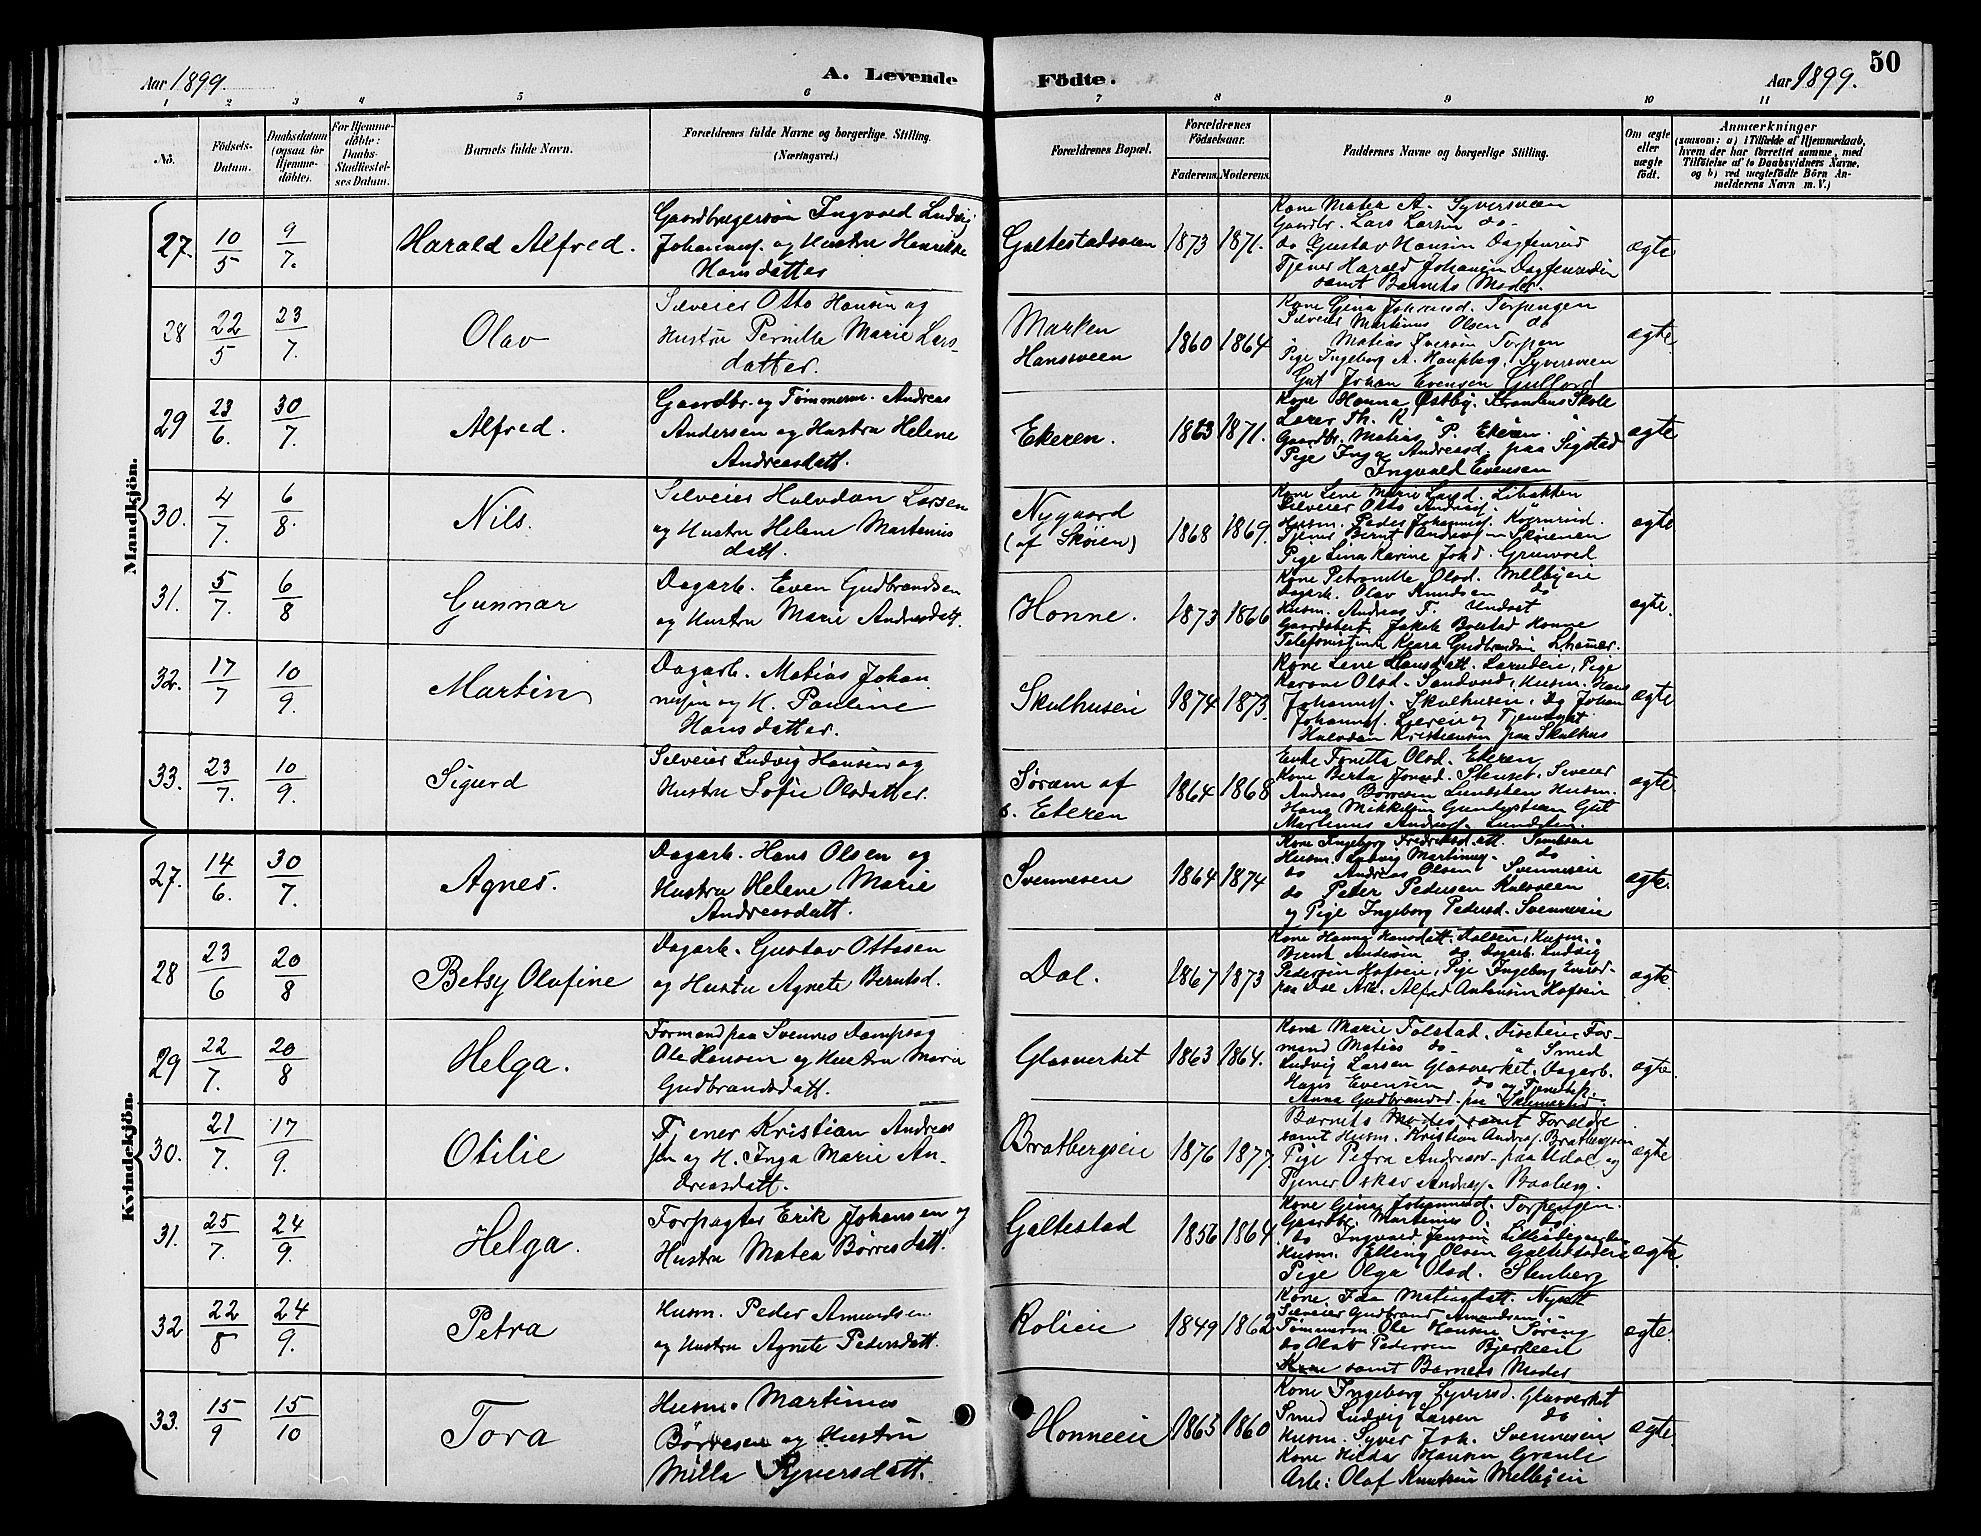 Aar 1899.
A. Levende Födte.
Aar 1899.
50
1 2 3 4 5 6 7 8 9 10 11
No.
Födsels-Datum.
Daabsdatum (ogsaa for Hjemme-döbte).
For Hjemme-döbte: Daabs-Stadfæstel-ses Datum.
Barnets fulde Navn.
Forældrenes fulde Navne og borgerlige Stilling. (Næringsvei.)
Forældrenes Bopæl.
Forældrenes Födselsaar.
Faderens. Moderens.
Faddernes Navne og borgerlige Stilling.
Om ægte eller uægte födt.
Anmærkninger
(saasom: a) i Tilfælde af Hjemmedaab, hvem der har forrettet samme, med Tilföielse af to Daabsvidners Navne, og b) ved uægtefödte Börn An-melderens Navn m. V.)
Mandkjön.
27. 10/5 9/7. Harald Alfred.
Gaardbrugersøn Ingvald Ludvig
Johannesf. og Hustru Henrikke
Hansdatter
Galtestadsveen 1873 1871.
Kone Matea A. Syversveen
Gaardbr. Lars Larsen do
do Gustav Hansen Dagfinrud
Tjener Harald Johansen
samt Barnets Moder.
ægte
28 22/5 23/7. Olav
Selveier Otto Hansen og
Hustru Pernille Marie Lars-
datter.
Marken
Hansveen 1860 1864
Kone Gina Johannesd. Torpengen
Selveier Martinus Olsen do
Matias Iversen Torpen
Pige Ingeborg A. Syversveen
Gut Johan Evensen
ægte
29 23/6. 30/7. Alfred.
Gaardbr. og Tømmerm. Andreas
Andersen og Hustru Helene
Andreasdatt.
Ekeren. 1863 1871.
Kone Hanna Østby. Skole
Lærer Th. K
Gaardbr. Matias P. Ekeren.
Pige Inga Andreasd. paa Sigstad
Ingvald Evensen
ægte
30. 4/7. 6/8. Nils.
Selveier Halvdan Larsen
og Hustru Helene Martinus
datt.
Nygaard
(af Skøien) 1868 1869.
Kone Lene Marie Larsd. Libakken
Selveier Otto Andreasf.
Husm. Peder Johannesf. Kværnrud.
Tjener Bernt Andreasf. Skøienen
Pige Lina Karine Joh.d. Grunvold
ægte
31. 5/7. 6/8 Gunnar
Dagarb. Even Gudbrandsen
og Hustru Marie Andreasdatt.
Honne. 1873 1866
Kone Petronille Olsd. Melbyeie
Dagarb. Olav Knudsen do
Husm. Andreas T. Undset
Gaardsbest. Jakob Bolstad Honne
Telefonistinde Klara Gudbrandsen Lhamer.
ægte.
32. 17/7 10/9. Martin
Dagarb. Matias Johan
nesen og H. Pauline
Hansdatter.
Skulhuseie 1874 1873.
Kone Lene Hansdatt. Pige
Karone Olsd. Sandvold, Husm. Hans
Johannesf. Skulhuseie, Dg Johan
Johannesf. og Tjenstgut
Halvdan Kristiansen paa Skulhus
ægte
33. 23/7. 10/9. Sigurd
Selveier Ludvig Hansen og
Hustru Sofie Olsdatter.
Søram af
s. Ekeren 1864 1868
Enke Olsd. Ekeren
Kone Berta Selveier
Andreas Børresen Lundsten Husm.
Hans Mikkelsen Gut
Martinus Andreasf. Lundsten.
ægte
Kvindekjön.
27. 14/6. 30/7. Agnes.
Dagarb. Hans Olsen og
Hustru Helene Marie
Andreasdatt.
Svenneseie 1864 1874
Kone Ingeborg Fredriksdatt.
Husm. Ludvig Martinusf. do
do Andreas Olsen Svenneseie
do Peter Pedersen
og Pige Ingeborg Pedersd. Svenneseie
ægte.
28 23/6 20/8 Betsy Olafine
Dagarb. Gustav Ottosen
og Hustru Agnete Berntsd.
Dal. 1867 1873
Kone Hanna Hansdatt. Dalseie, Husm.
Bernt Andersen do Dagarb. Ludvig
Pedersen Hofseie, Pige Ingeborg
paa Dal Arb. Alfred Antonsen Hofseie
ægte.
29 22/7. 20/8 Helga.
Formand paa Svennes Dampsag
Ole Hansen og Hustru Marie
Gudbrandsdatt.
Glasverket 1863 1864.
Kone Marie Tolstad. For-
mand Matias do Smed
Ludvig Larsen Glasverket. Dagarb.
Hans Evensen do og Tjenestep.
Anna Gudbrandsd. paa
ægte.
30. 21/7. 17/9. Otilie
Tjener Kristian Andreas
sen og H. Inga Marie An-
dreasdatt.
Bratbergseie 1876 1877
Barnets samt Forældre
samt Husm. Kristian Andreasf. Bratbergseie
Pige Petra Andreasd. paa Udal og
Tjener Oskar Andreasf. Baaberg.
ægte
31. 25/7. 24/9. Helga.
Forpagter Erik Johansen og
Hustru Matea Børresdatt.
Galtestad 1856 1864
Kone Gina Johannesd. Torpengen.
Gaardbr. Martinus O. do
do Ingvald Jensen
Husm. Elling Olsen Galtestadeie
Pige Olga Olsd. Stenberg
ægte
32 22/8 24/9. Petra
Husm. Peder Amundsen
og Hustru Agnete Pedersdatt.
Rolieie 1849 1862
Kone Ida Matiasdatt. Nyset
Selveier Gudbrand Amundsen
Tømmerm. Ole Hansen Søreng
do Olav Pedersen Bjerkeeie
samt Barnets Moder
ægte.
33. 15/9 15/10 Tora
Husm. Martinus
Børresen og Hustru
Milla Syversdatt.
Honneeie 1865 1860
Kone Ingeborg Syversd. Glasverket
Smed Ludvig Larsen do
Husm. Syver Joh. Svenneseie
Kone Hilda Hansen Granli
Arb: Olaf Knutsen Melbyeie
ægte.